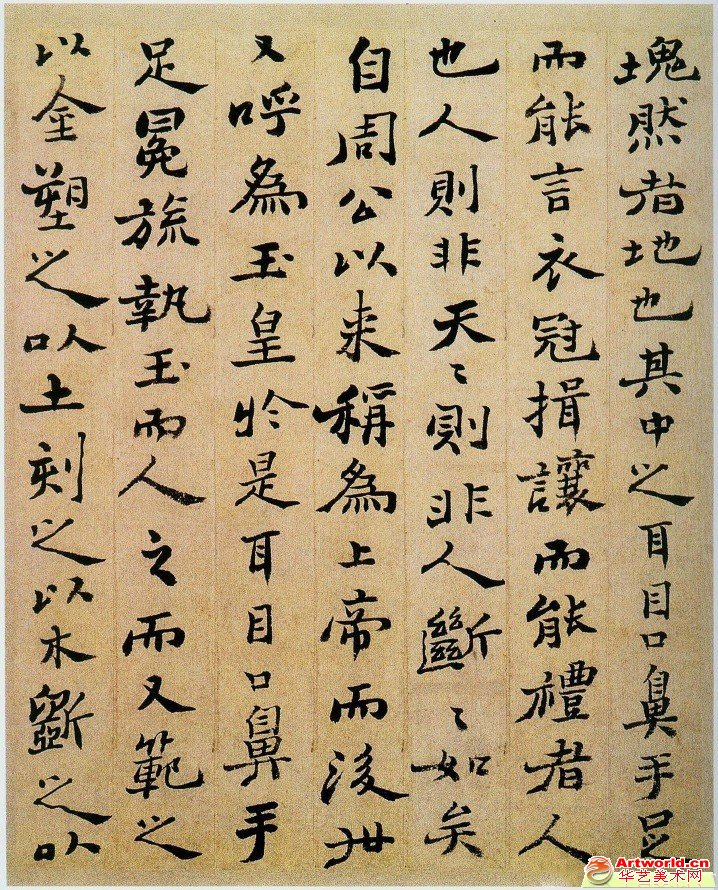 塊然者地也其中之耳目口鼻手足
而能言衣冠揖讓而能禮者人
也人則非天〻則非人斷〻如矣
自周公以来稱為上帝而後世
又呼為玉皇於是耳目口鼻手
足冕旒執玉而人之而又範之
以金塑之以土刻之以木斵之以
Artworld.cn
华艺美术网